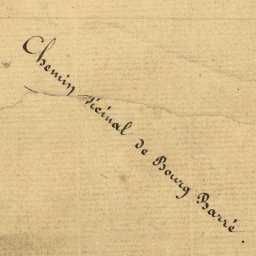 Chemin vicinal de Bourg Barré.